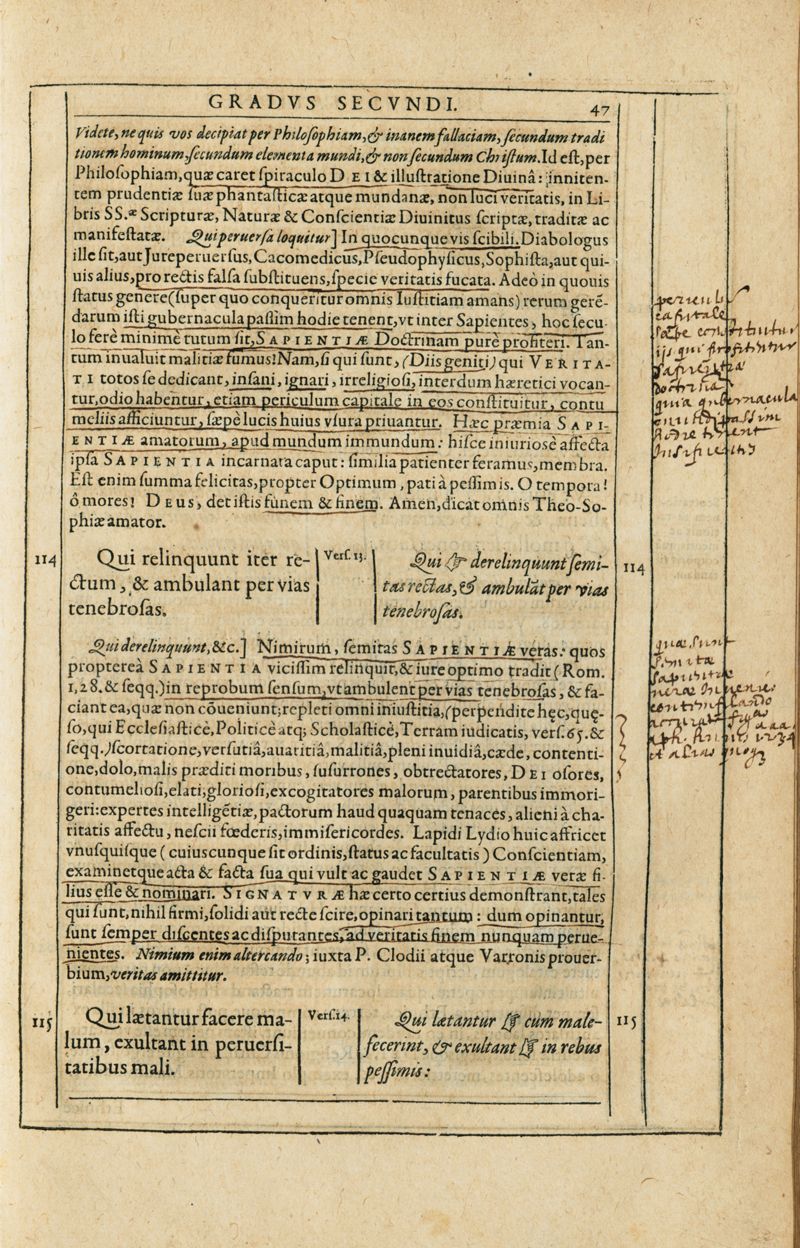 GRADVS SECVNDI.
47
Videte, ne quis vos decipiat per Philoſophiam, & inanem fallaciam, ſecundum tradi
tionem hominum, ſecundum elementa mundi, & non ſecundum Chriſtum. Id eſt, per
Philoſophiam, quæ caret ſpiraculo DEI & illuſtratione Diuinâ: inniten-
tem prudentiæ ſuæ phantaſticæ atque mundanæ, non luci veritatis, in Li-
bris SS.æ Scripturæ, Naturæ & Conſcientiæ Diuinitus ſcriptæ, traditæ ac
manifeſtatæ. Qui peruerſa loquitur] In quocunque vis ſcibili. Diabologus
ille ſit, aut Jureperuerſus, Cacomedicus, Pſeudophyſicus, Sophiſta, aut qui-
uis alius, pro rectis falſa ſubſtituens, ſpecie veritatis fucata. Adeò in quouis
ſtatus genere (ſuper quo conqueritur omnis Iuſtitiam amans) rerum gerē-
darum iſti gubernacula paſſim hodie tenent, vt inter Sapientes, hoc ſecu-
lo ferè minimè tutum ſit, SAPIENTIÆ Doctrinam purè profiteri. Tan-
tum inualuit malitiæ fumus! Nam, ſi qui ſunt, (Diis geniti) qui VERITA-
TI totos ſe dedicant, inſani, ignari, irreligioſi, interdum hæretici vocan-
tur, odio habentur, etiam periculum capitale in eos conſtituitur, contu
meliis afficiuntur, ſæpè lucis huius vſura priuantur. Hæc præmia SAPI-
ENTIÆ amatorum, apud mundum immundum: hiſce iniuriosè affecta
ipſa SAPIENTIA incarnata caput: ſimilia patienter feramus, membra.
Eſt enim ſumma felicitas, propter Optimum, pati à peſſimis. O tempora!
ô mores! DEUS, det iſtis funem & finem. Amen, dicat omnis Theo-So-
phiæ amator.
114
Qui relinquunt iter re-
ctum, & ambulant per vias
tenebroſas.
Verſ. 13.
Qui & derelinquunt ſemi-
tas rectas, & ambulāt per vias
tenebroſas.
114
Qui derelinquunt, &c.] Nimirum, ſemitas SAPIENTIÆ veras: quos
propterea SAPIENTIA viciſſim relinquit, & iure optimo tradit (Rom.
1, 28. & ſeqq.) in reprobum ſenſum, vt ambulent per vias tenebroſas, & fa-
ciant ea, quæ non cōueniunt; repleti omni iniuſtitia, (perpendite hęc, quę-
ſo, qui Eccleſiaſticè, Politicè atq; Scholaſticè, Terram iudicatis, verſ. 65. &
ſeqq.) ſcortatione, verſutiâ, auaritiâ, malitiâ, pleni inuidiâ, cæde, contenti-
one, dolo, malis præditi moribus, ſuſurrones, obtrectatores, DEI oſores,
contumelioſi, elati, glorioſi, excogitatores malorum, parentibus immori-
geri: expertes intelligētiæ, pactorum haud quaquam tenaces, alieni à cha-
ritatis affectu, neſcii fœderis, immiſericordes. Lapidi Lydio huic affricet
vnuſquiſque (cuiuscunque ſit ordinis, ſtatus ac facultatis) Conſcientiam,
examinetque acta & facta ſua qui vult ac gaudet SAPIENTIÆ veræ fi-
lius eſſe & nominari. SIGNATVRÆ hæ certo certius demonſtrant, tales
qui ſunt, nihil firmi, ſolidi aut recte ſcire, opinari tantum: dum opinantur,
ſunt ſemper diſcentes ac diſputantes, ad veritatis finem nunquam perue-
nientes. Nimium enim altercando; iuxta P. Clodii atque Varronis prouer-
bium, veritas amittitur.
115
Qui lætantur facere ma-
lum, exultant in peruerſi-
tatibus mali.
Verſ. 14.
Qui lætantur cùm male-
fecerint, & exultant in rebus
peſſimis:
115